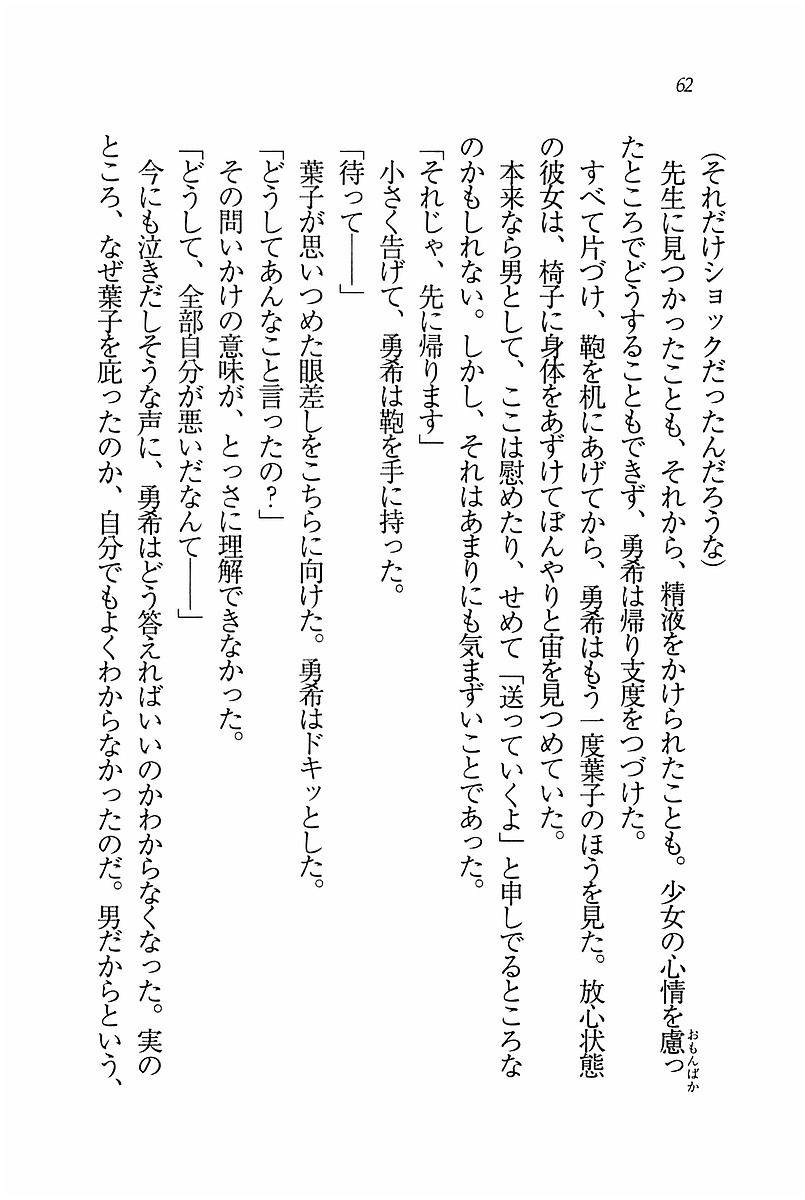 62
（それだけショックだったんだろうな）
　先生に見つかったことも、それから、精液をかけられたことも。少女の心情を慮っ
おもんばか
たところでどうすることもできず、勇希は帰り支度をつづけた。
　すべて片づけ、鞄を机にあげてから、勇希はもう一度葉子のほうを見た。放心状態
の彼女は、椅子に身体をあずけてぼんやりと宙を見つめていた。
　本来なら男として、ここは慰めたり、せめて「送っていくよ」と申しでるところな
のかもしれない。しかし、それはあまりにも気まずいことであった。
「それじゃ、先に帰ります」
　小さく告げて、勇希は鞄を手に持った。
「待って――」
　葉子が思いつめた眼差しをこちらに向けた。勇希はドキッとした。
「どうしてあんなこと言ったの？」
　その問いかけの意味が、とっさに理解できなかった。
「どうして、全部自分が悪いだなんて――」
　今にも泣きだしそうな声に、勇希はどう答えればいいのかわからなくなった。実の
ところ、なぜ葉子を庇ったのか、自分でもよくわからなかったのだ。男だからという、